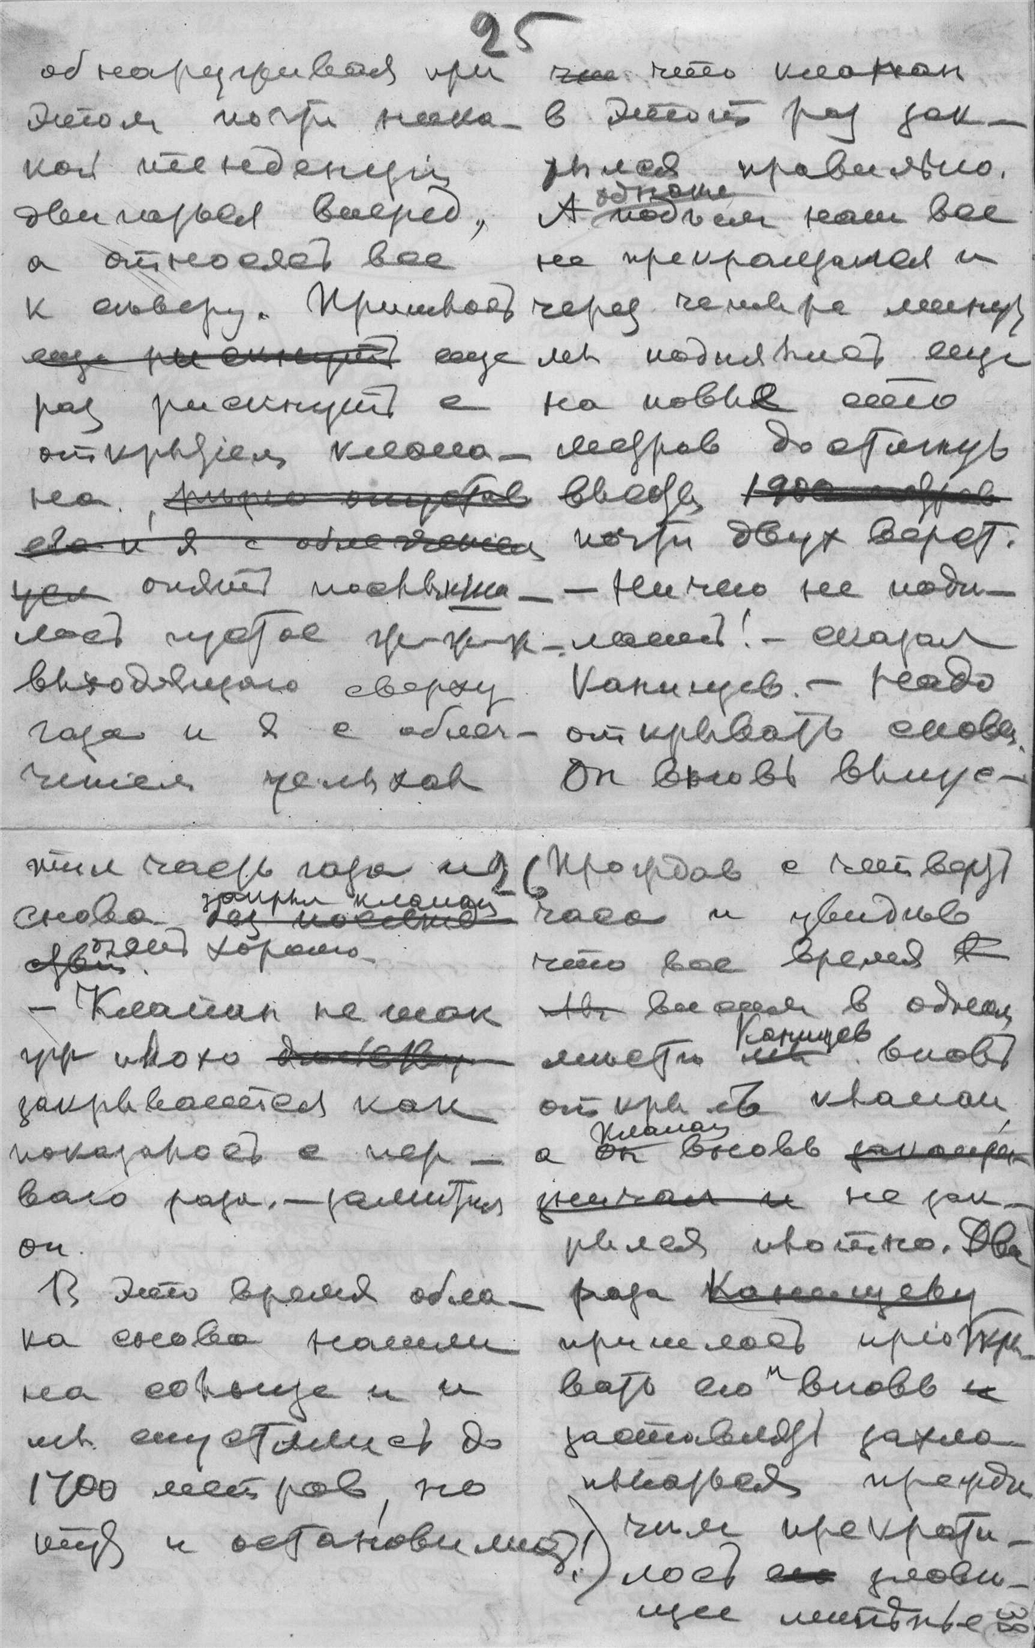 25
обнаруживая при
этом почти ника-
кой тенденціи
двигаться вперед,
а относясь все
к северу. Пришлось
еще рискнуть еще
раз рискнуть с
открытіем клапа-
на.
его и я с облегченіем
опять послыша-
лось густое ж-ж-ж-
выходящаго сверху
газа и я с облег-
ченіем услыхал
что клапан
в этот раз зак-
рылся правильно.
однако
А подъем наш все
не прекращался и
через четыре минуты
мы поднялись еще
на новые сто
метров достигнув
высоты 1900 метров
почти двух верст.
- Ничего не поди-
лаешь! - сказал
Канищев. - Надо
открывать снова.
Он вновь выпус-
26
тил часть газа и
закрыл клапан
снова
опять хорошо
- Клапан не так
уж плохо
закрывается как
показалось с пер-
ваго раза. - заметил
он.
В это время обла-
ка снова нашли
на солнце и
мы спустились до
1700 метров, но
тут и остановились!
Прождав с четверть
часа и увидев
что все время
мы висим в одном
Канищев
месте мы вновь
открыл клапан,
клапан
а он вновь
не зак-
рылся плотно. Два
раза Канищеву
пришлось пріоткры-
вать его и вновь и
заставлять захло
пываться прежде
чем прекрати-
лось его злове-
щее шипѣнье
33